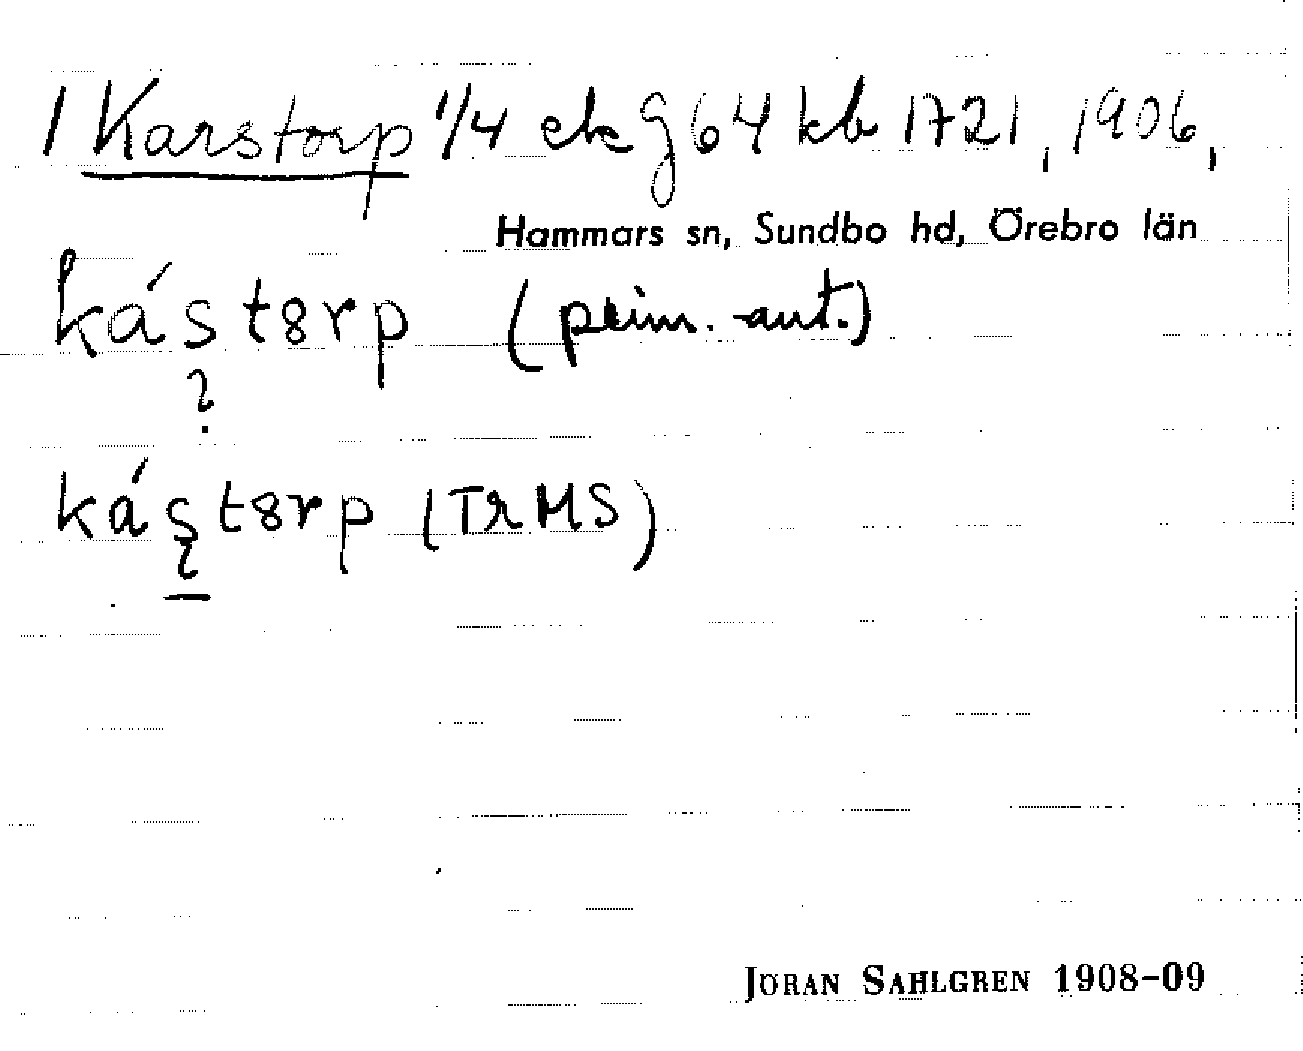 1 Karstorp 1/4 ek g 64 kb 1721, 1906,
Hammars sn, Sundbo hd, Örebro län
kástȣrp (prim. ant.)
?
kás̨tȣrp (TrMS)
JÖRAN SAHLGREN 1908-09